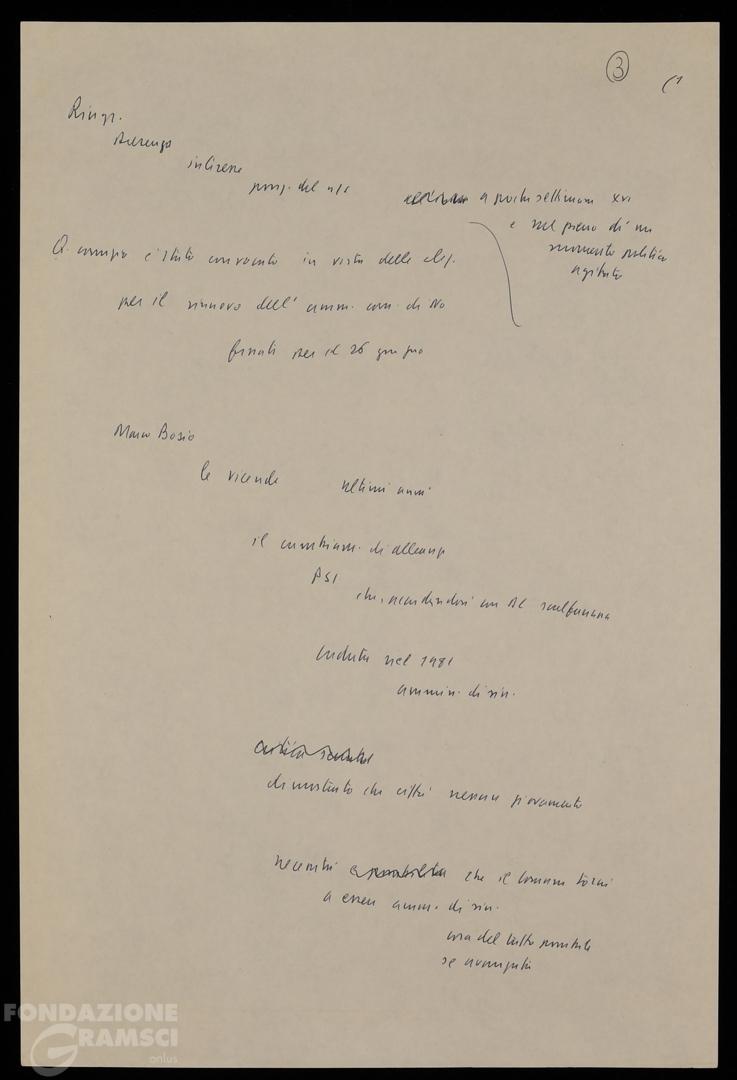 3
Ringr.
presenza
interesse
a poche settimane XVI
e nel pieno di un
momento politico
agitato
Q. comizio è stato convocato in vista delle elez.
per il rinnovo dell' amm. com. di No
fissati per il 26 giugno
Marco Bosio
le vicende ultimi anni
il cambiam. di alleanza
PSI
che, accordandosi con DC
caduta nel 1981
ammin. di sin.
dimostrato che città nessun giovamento
necessità che il comune torni
a essere amm. di sin.
cosa del tutto possibile
se
FONDAZIONE
GRAMSCI
onlus